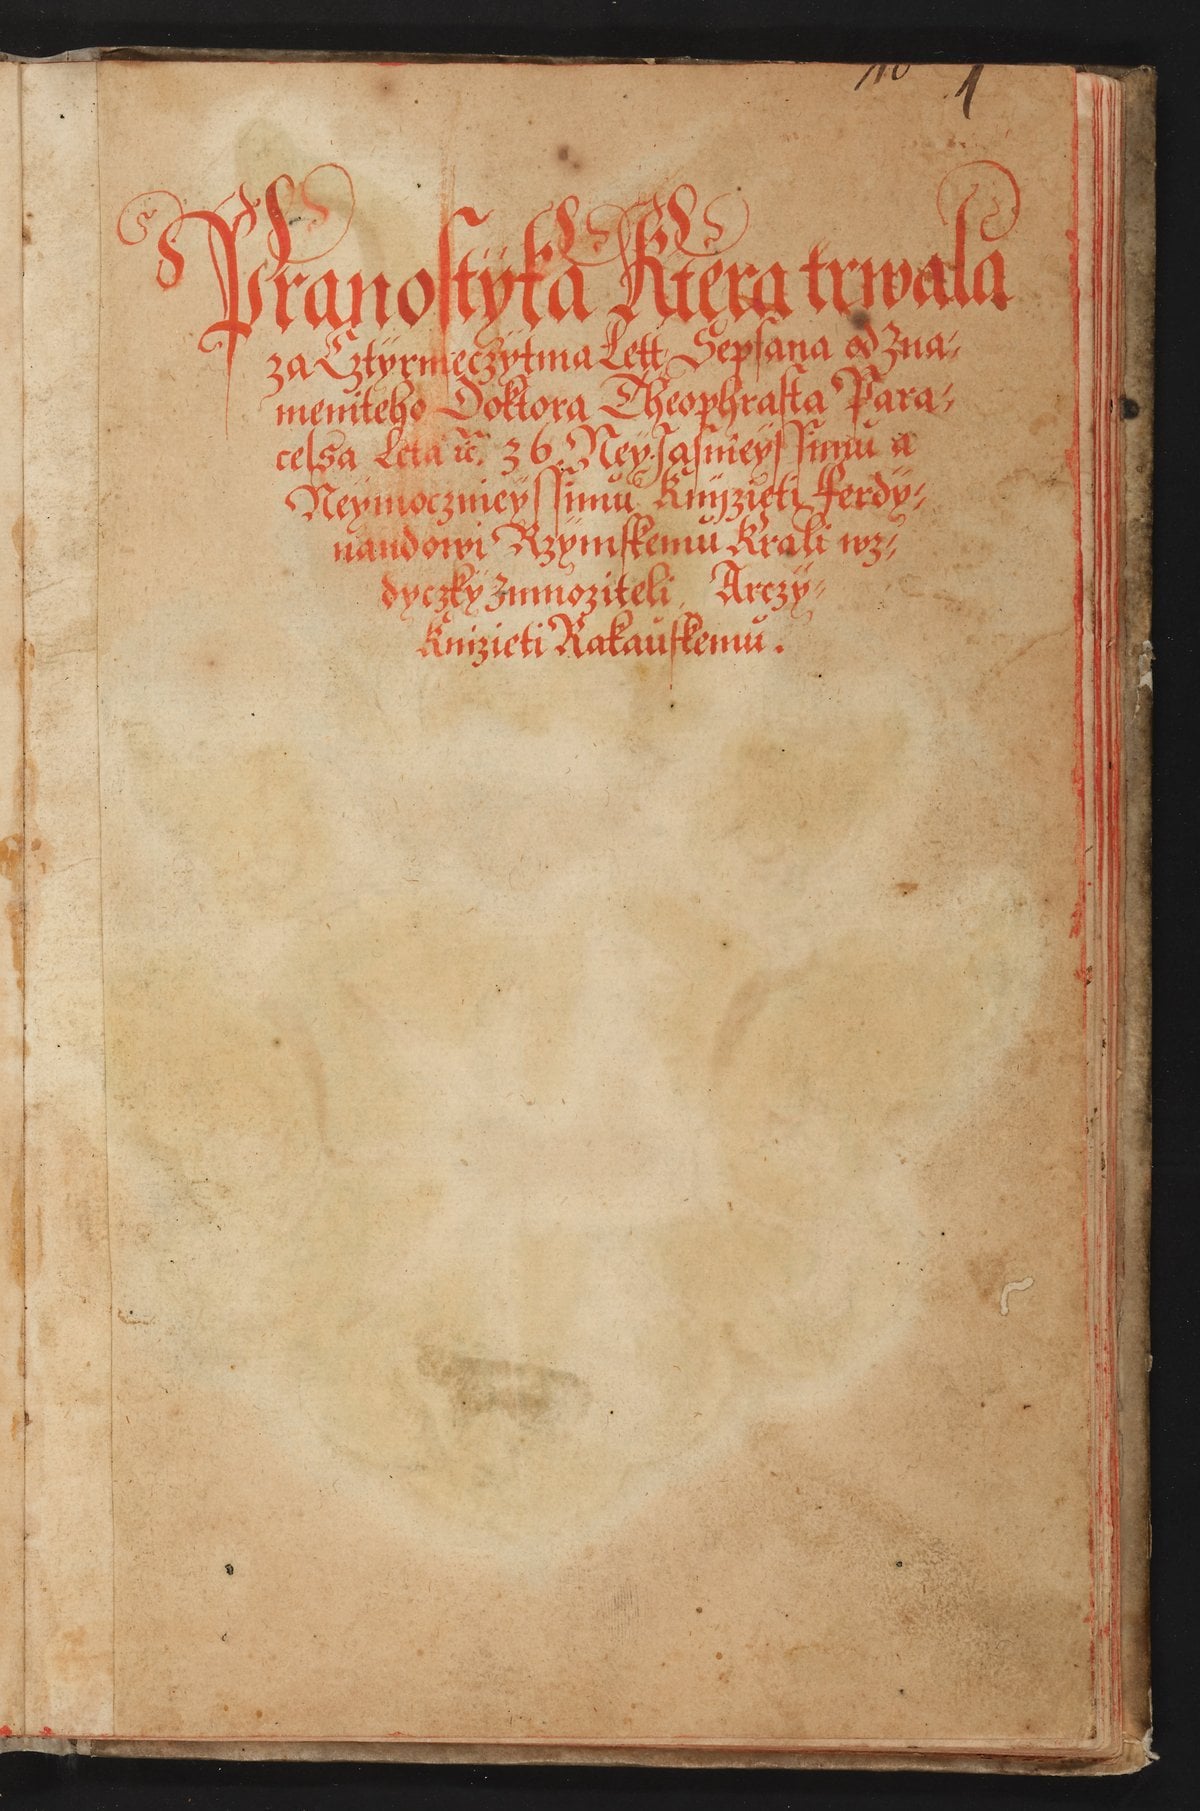 1
Pranostÿka Ktera trwala
za Cztÿrmeczÿtma Lett, Sepsana od Zna⸗
meniteho Doktora Theophrasta Para⸗
celsa Leta ꝛc̃. 36. Neyjasnieyssimu a
Neymocznieyssimu Knijzieti Ferdy⸗
nandowi Rzÿmskemu Krali wz⸗
dyczkÿ Zmnoziteli, Arczÿ⸗
Knizieti Rakauskemu.